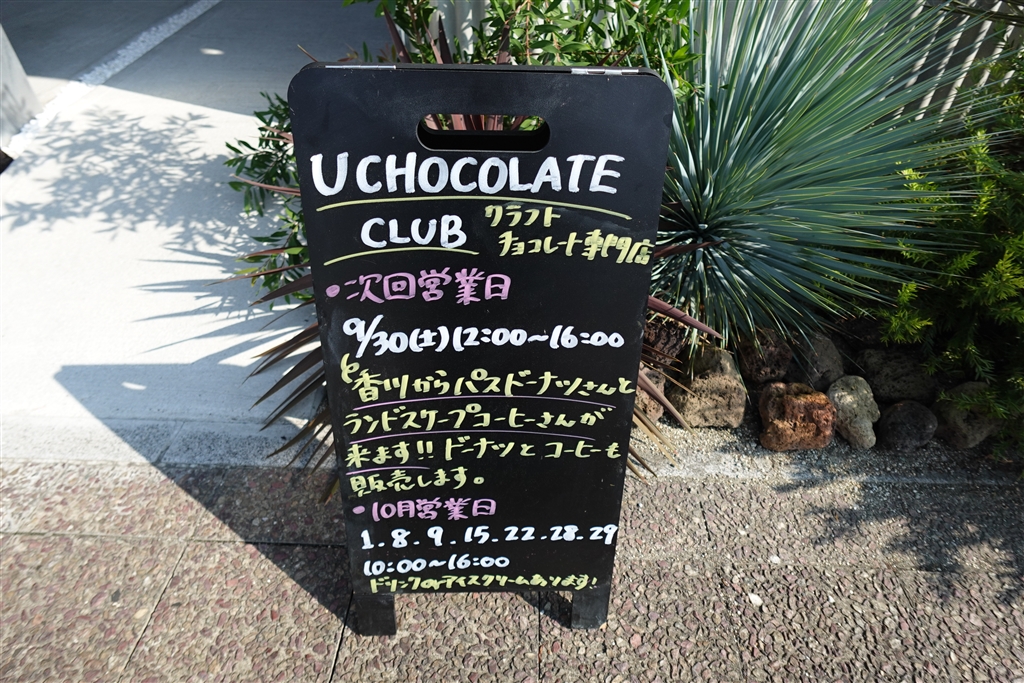 U CHOCOLATE
CLUB
クラフト
チョコレート専門店
・次回営業日
9/30(土)12:00〜16:00
香川からパスドーナツさんと
ランドスケープコーヒーさんが
来ます!!ドーナツとコーヒーも
販売します。
・10月営業日
1.8.9.15.22.28.29
10:00〜16:00
ドリンクorアイスクリームあります!